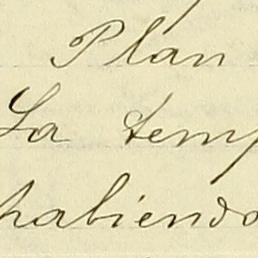 Plan
La temp
habiendo